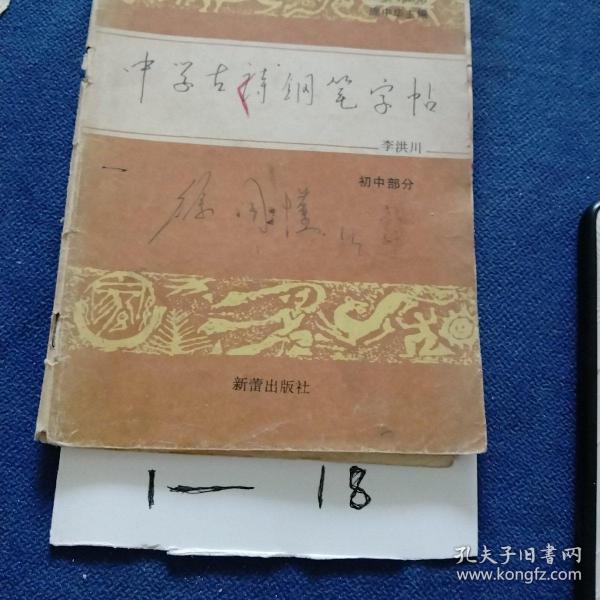 中学古诗钢笔字帖
李洪川
初中部分
新蕾出版社
1— 18
孔夫子旧書网
www.kongfz.com